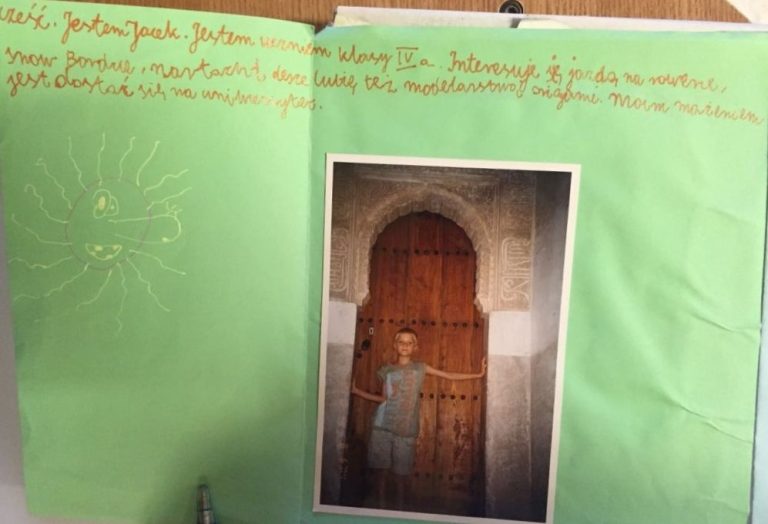 cześć. Jestem Jacek. Jestem uczniem klasy IV a. Interesuję się jazdą na rowerze,
snow Bordzię, nartach i desce lubię też modelarstwo, origami. Moim mażeniem
jest dostać się na uniwersytet.